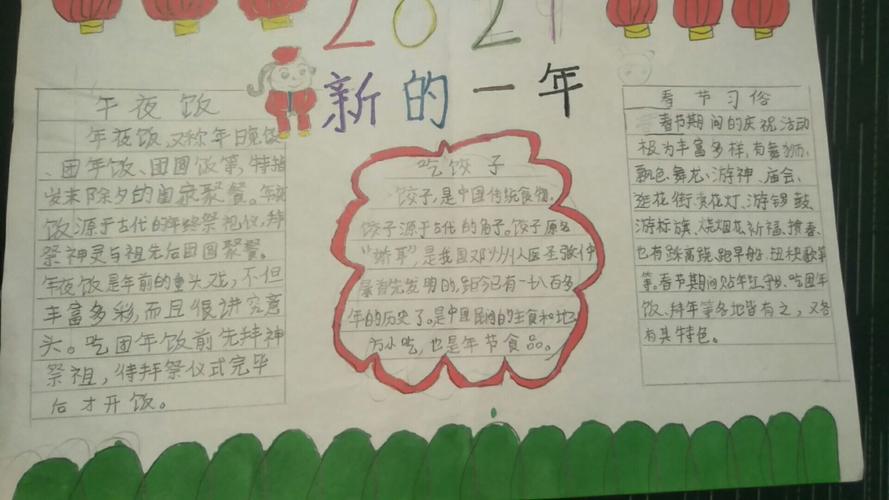 2021
新的一年
午夜饭
年夜饭,又称年日晚饭
、团年饭、团圆饭等,特指
岁末除夕的阖家聚餐。年夜
饭源于古代的年终祭祀仪,拜
祭神灵与祖先后团圆聚餐。
年夜饭是年前的重头戏,不但
丰富多彩,而且很讲究意
头。吃团年饭前先拜神
祭祖,待拜祭仪式完毕
后才开饭。
吃饺子
饺子,是中国传统食物,
饺子源于古代的角子。饺子原名
"娇耳",是我国邓州人医圣张仲
景首先发明的,距今已有一八百多
年的历史了。是中国民间的主食和地
方小吃,也是年节食品。
春节习俗
春节期间的庆祝活动
极为丰富多样,有舞狮、
飘色、舞龙、游神、庙会、
逛花街、赏花灯、游锣鼓、
游标旗、烧烟花、祈福、掼春、
也有踩高跷、跑旱船、扭秧歌等
等。春节期间贴年红、守岁、吃团年
饭、拜年等各地皆有之,又各
有其特色。